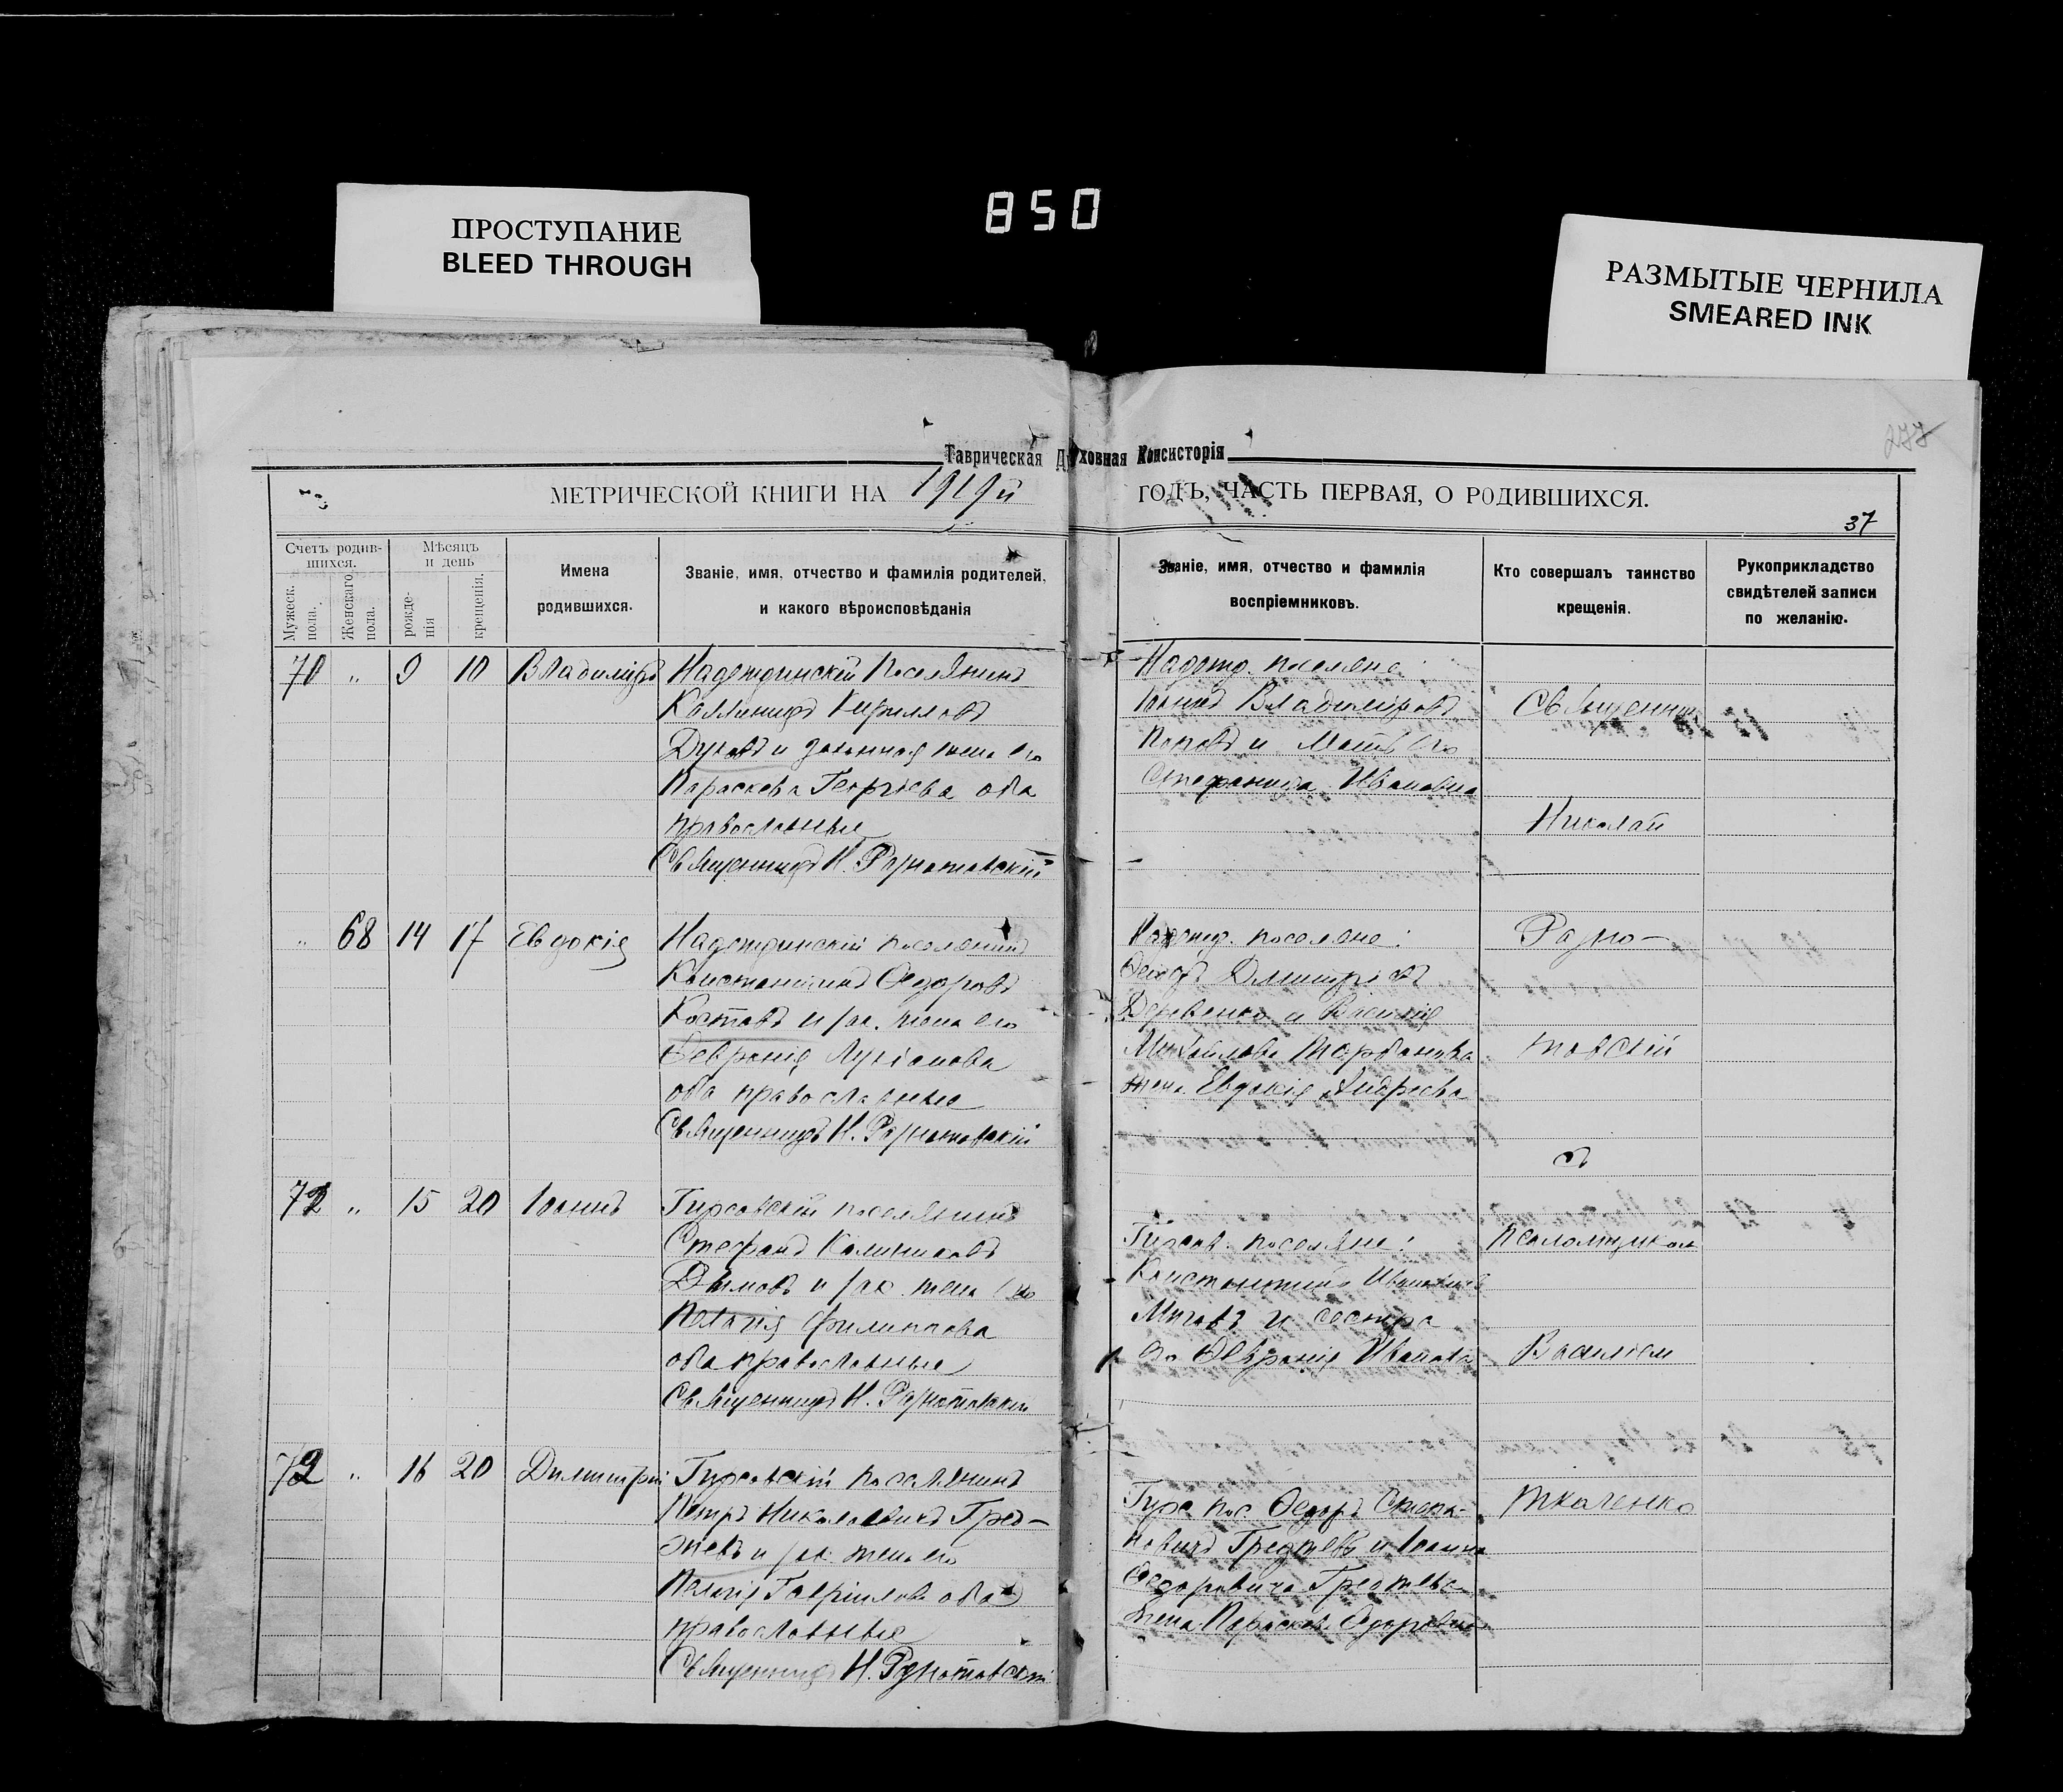 850
ПРОСТУПАНИЕ
BLEED THROUGH
РАЗМЫТЫЕ ЧЕРНИЛА
SMEARED INK
277
Таврическая Духовная Консисторія
МЕТРИЧЕСКОЙ КНИГИ НА 1919й ГОДЪ, ЧАСТЬ ПЕРВАЯ, О РОДИВШИХСЯ.
37
Счетъ родив-
шихся.
Мужеск. пола.
Женскаго пола.
Мѣсяцъ
и день
рожде-
нія
крещенія.
Имена
родившихся.
Званіе, имя, отчество и фамилія родителей,
и какого вѣроисповѣданія
Званіе, имя, отчество и фамилія
воспріемниковъ.
Кто совершалъ таинство
крещенія.
Рукоприкладство
свидѣтелей записи
по желанію.
70 " 9 10 Владиміръ
Надеждинскій Поселянинъ
Каллиникъ Кирилловъ
и законная жена его
Параскева Георгіева оба
православные
Священникъ Н.
Надежд. поселяне:
Іоаннъ Владиміровъ
Поповъ и Мать его
Стефанида Ивановна
" 68 14 17 Евдокія
Надеждинскій поселянинъ
Константинъ Ѳедоровъ
Костовъ и зак. жена его
Февронія Лукіанова
оба православные
Священникъ Н.
Надежд. поселяне:
Димитріевъ
Деревенко и Василія
Михайлова
жена Евдокія Андреева
72 " 15 20 Іоаннъ
Гирсовскій поселянинъ
Стефанъ Каллиниковъ
Дымовъ и зак. жена его
Пелагія Филиппова
оба православные
Священникъ Н.
Гирсов. поселяне:
Константинъ Ивановъ
и сестра
его Февронія Иванова
72 " 16 20 Димитрій
Гирсовскій поселянинъ
Петръ Николаевичъ Гред-
жевъ и зак. жена его
Пелагія Гавріилова оба
православные
Священникъ Н.
Гирс. пос. Ѳедоръ Степа-
новичъ Греджевъ и Іоанна
Ѳедоровича Греджева
жена Параскева Ѳедоровна
Священник
Николай
товскій
съ
Псаломщиком
Василіем
Ткаченко